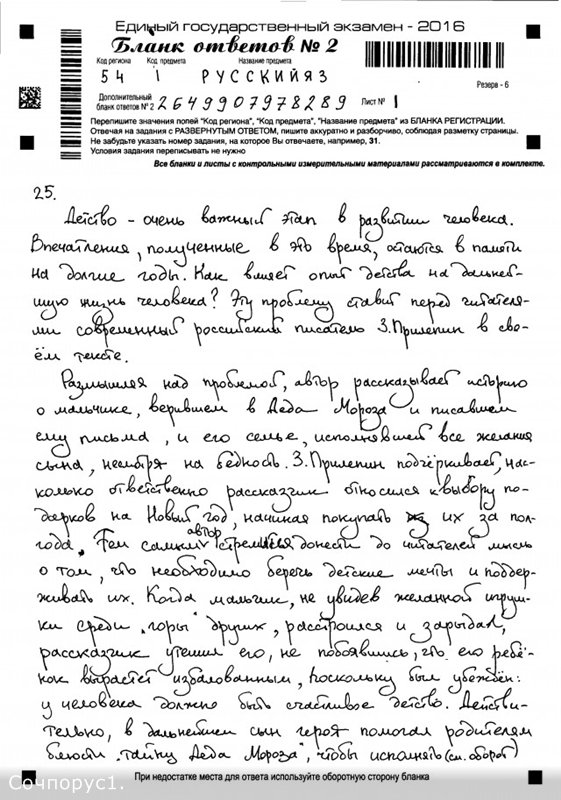 Единый государственный экзамен - 2016
Бланк ответов № 2
Код региона Код предмета Название предмета
54 1 РУССКИЙЯЗ
Резерв - 6
Дополнительный
бланк ответов № 2 2649907978289 Лист № 1
Перепишите значения полей "Код региона", "Код предмета", "Название предмета" из БЛАНКА РЕГИСТРАЦИИ.
Отвечая на задания с РАЗВЕРНУТЫМ ОТВЕТОМ, пишите аккуратно и разборчиво, соблюдая разметку страницы.
Не забудьте указать номер задания, на которое Вы отвечаете, например, 31.
Условия задания переписывать не нужно
Все бланки и листы с контрольными измерительными материалами рассматриваются в комплекте.
25.
Детство - очень важный этап в развитии человека.
Впечатления, полученные в это время, остаются в памяти
на долгие годы. Как влияет опыт детства на дальней-
шую жизнь человека? Эту проблему ставит перед читателя-
ми современный российский писатель З.Прилепин в сво-
ём тексте.
Размышляя над проблемой, автор рассказывает историю
о мальчике, верившем в Деда Мороза и писавшем
ему письма, и его семье, исполнявшей все желания
сына, несмотря на бедность. З.Прилепин подчёркивает, нас-
колько ответственно рассказчик относился к выбору по-
дарков на Новый год, начиная покупать их за пол-
года. Тем самым автор стремился донести до читателей мысль
о том, что необходимо беречь детские мечты и поддер-
живать их. Когда мальчик, не увидев желанной игруш-
ки среди "горы" других, расстроился и зарыдал,
рассказчик утешил его, не побоявшись, что его ребё-
нок вырастет избалованным, поскольку был убеждён:
у человека должно быть счастливое детство. Действи-
тельно, в дальнейшем сын героя помогал родителям
блюсти "тайну Деда Мороза", чтобы исполнять (см. оборот)
При недостатке места для ответа используйте оборотную сторону бланка
Сочпорус1.